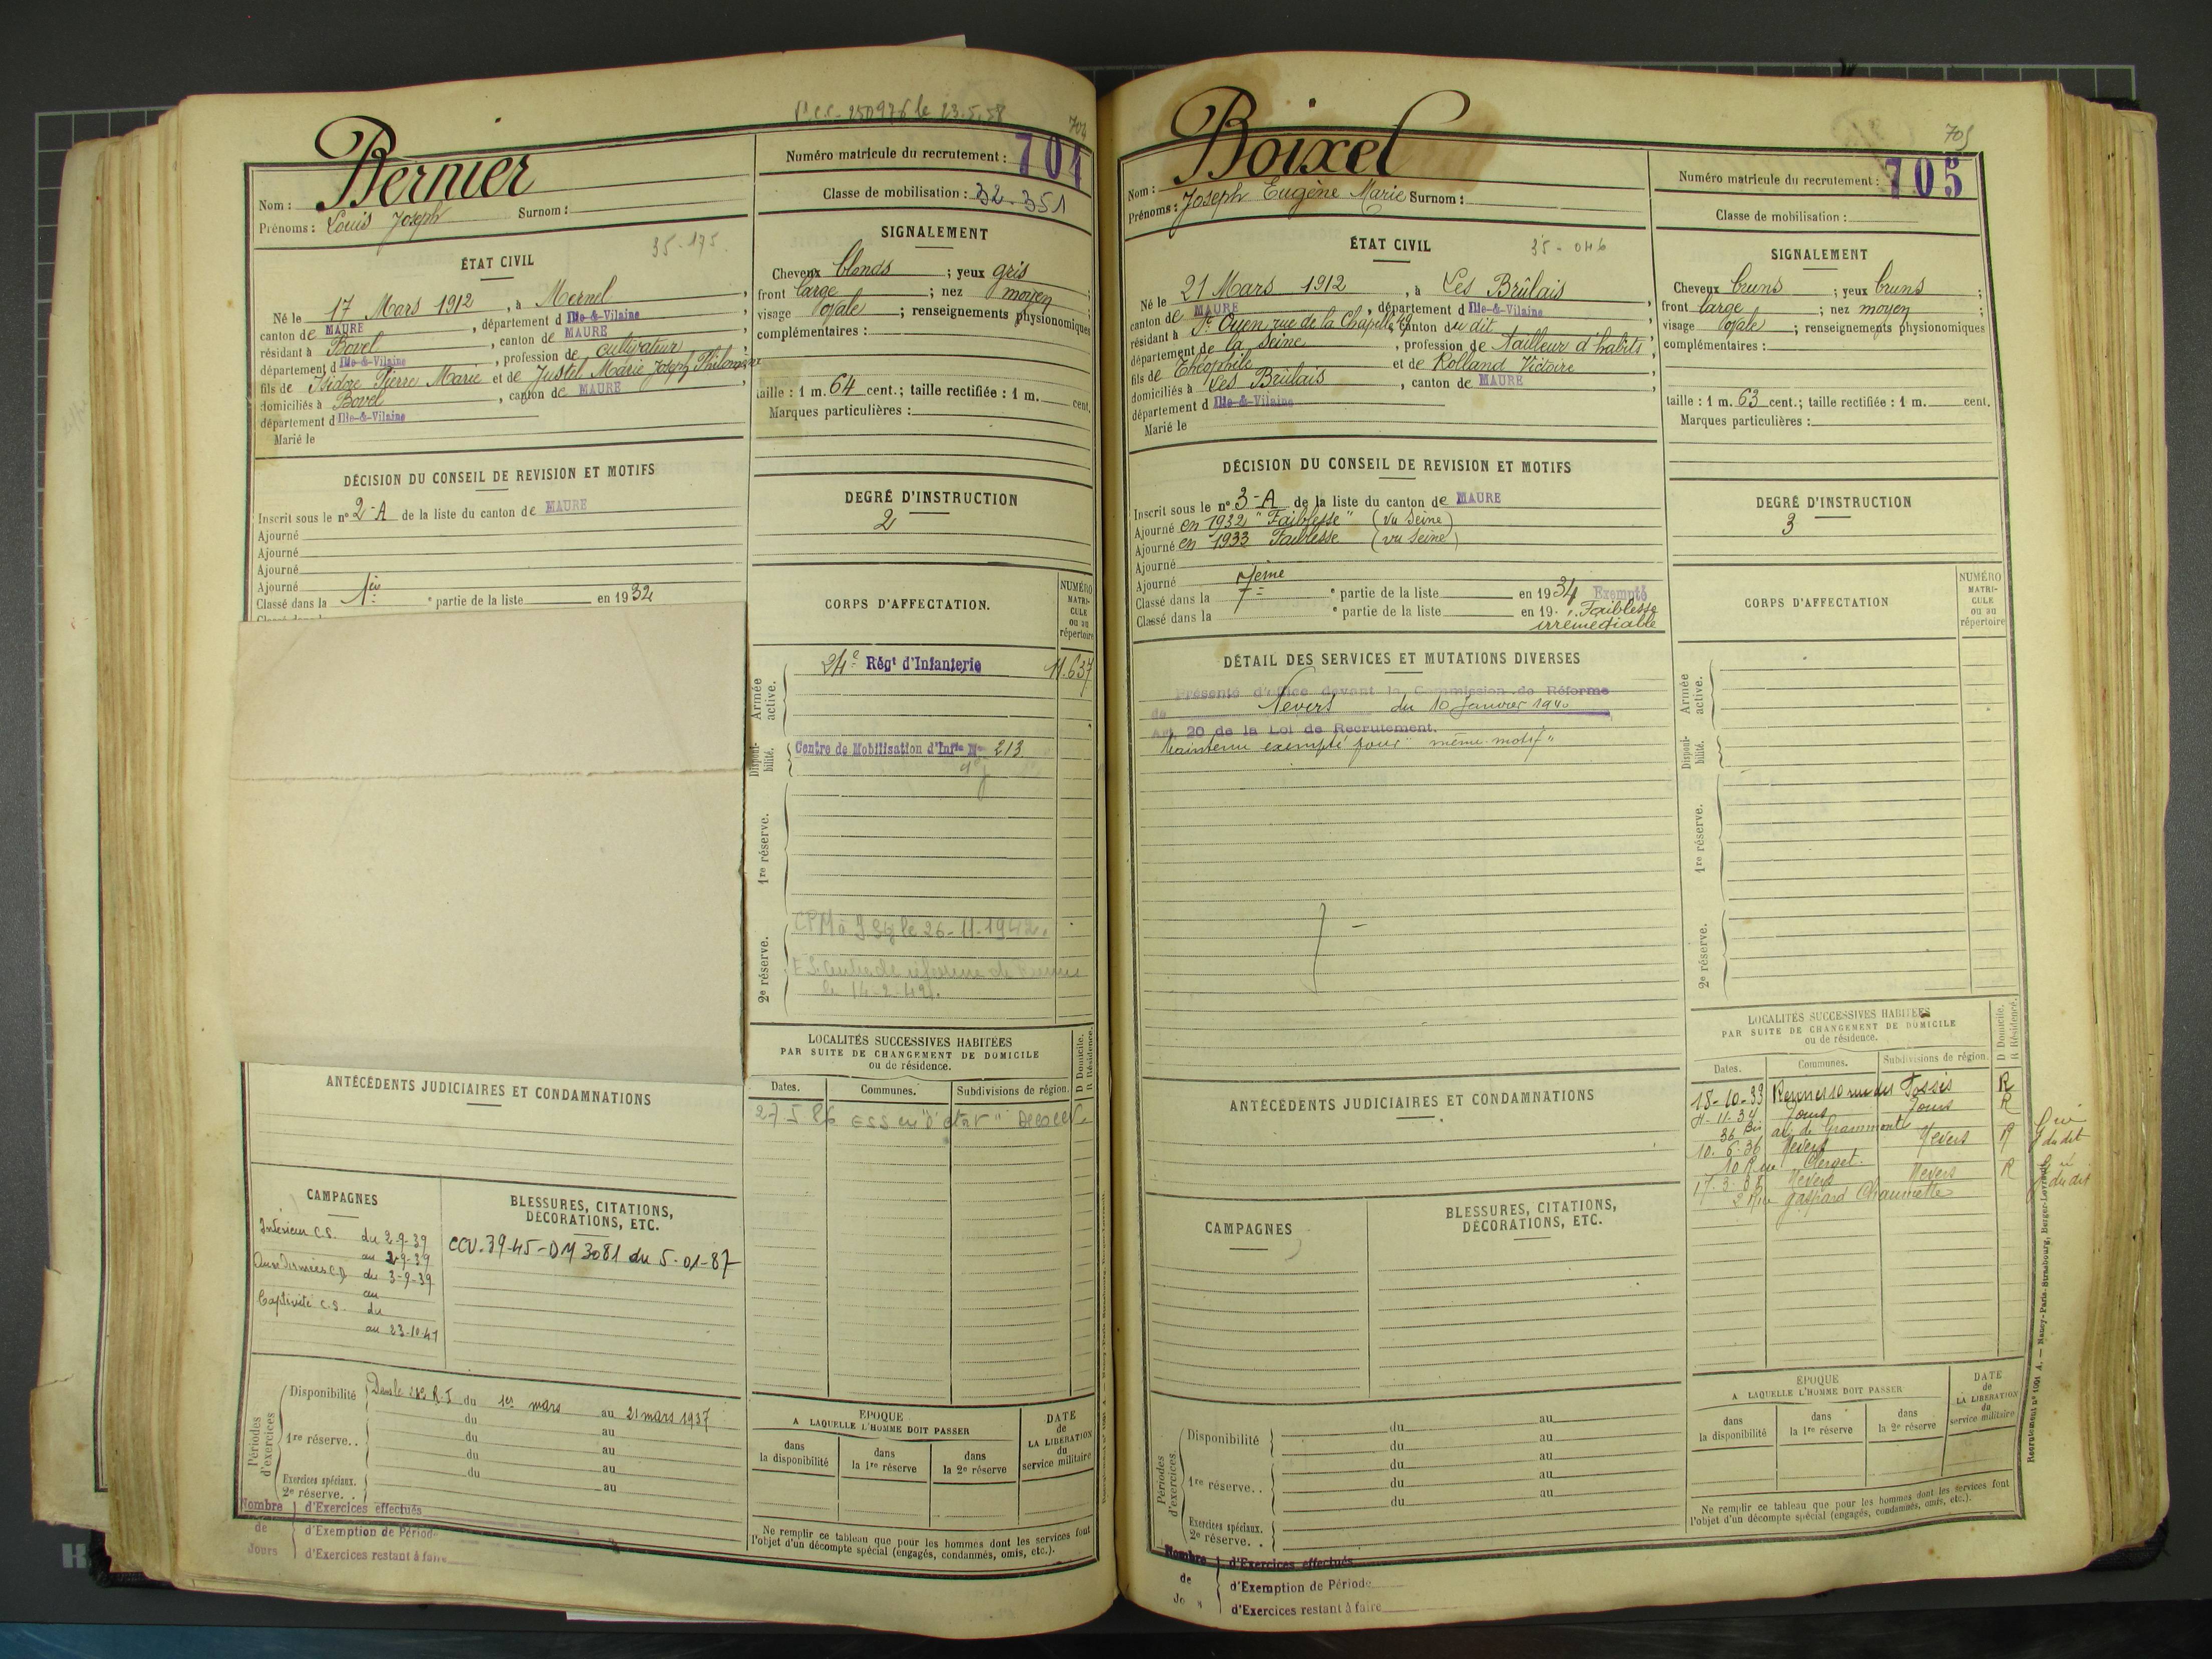 704
Bernier
Nom :
Prénoms : Louis Joseph Surnom :
Numéro matricule du recrutement : 704
Classe de mobilisation : 32-351
35-175.
ÉTAT CIVIL
Né le 17 Mars 1912, à Mernel,
canton de MAURE, département d Ille-&-Vilaine
résidant à Bovel, canton de MAURE
département d Ille-&-Vilaine, profession de cultivateur
fils de Isidore Pierre Marie et de Justel Marie Joseph
domiciliés à Bovel, canton de MAURE
département d Ille-&-Vilaine
Marié le
SIGNALEMENT
Cheveux blonds ; yeux gris
front large ; nez moyen ;
visage ovale ; renseignements physionomiques
complémentaires :
taille : 1 m. 64 cent.; taille rectifiée : 1 m. cent.
Marques particulières :
DÉCISION DU CONSEIL DE REVISION ET MOTIFS
Inscrit sous le nº 2-A de la liste du canton de MAURE
Ajourné
Ajourné
Ajourné
Ajourné
Classé dans la 1ère e partie de la liste en 1932
DEGRÉ D'INSTRUCTION
2
CORPS D'AFFECTATION.
NUMÉRO MATRI-CULE ou au répertoire
Armée active.
24e Régt d'Infanterie 11.637
Disponi-bilité.
Centre de Mobilisation d'Infie No 213
1re réserve.
2e réserve.
le 26-11-1942.
LOCALITÉS SUCCESSIVES HABITÉES
PAR SUITE DE CHANGEMENT DE DOMICILE
ou de résidence.
D Domicile.
R Résidence.
Dates. Communes. Subdivisions de région.
27.5.86 ESS
ANTÉCÉDENTS JUDICIAIRES ET CONDAMNATIONS
CAMPAGNES
Intérieur C.S. du 2-9-39
au 2-9-39
Aux Armées C.D du 3-9-39
au
Captivité C.S. du
au 23-10-41
BLESSURES, CITATIONS,
DÉCORATIONS, ETC.
CCV.39-45-DM 3081 du 5-01-87
Périodes d'exercices
Disponibilité Dans le R.I. du 1er mars au 21 mars 1937
du au
1re réserve. . du au
du au
Exercices spéciaux. du au
2e réserve. . au
Nombre de Jours
d'Exercices effectués
d'Exemption de Période
d'Exercices restant à faire
EPOQUE
A LAQUELLE L'HOMME DOIT PASSER
dans la disponibilité
dans la 1re réserve
dans la 2e réserve
DATE de LA LIBERATION du service militaire
Ne remplir ce tableau que pour les hommes dont les services font
l'objet d'un décompte spécial (engagés, condamnés, omis, etc.).
705
Boixel
Nom :
Prénoms : Joseph Eugène Marie Surnom :
Numéro matricule du recrutement : 705
Classe de mobilisation :
ÉTAT CIVIL
35-046
Né le 21 Mars 1912, à Les Brûlais,
canton de MAURE, département d Ille-&-Vilaine
résidant à St Ouen rue de la Chapelle 49, canton du dit
département de la Seine, profession de tailleur d'habits
fils de Théophile et de Rolland Victoire
domiciliés à Les Brûlais, canton de MAURE
département d Ille-&-Vilaine
Marié le
SIGNALEMENT
Cheveux bruns ; yeux bruns ;
front large ; nez moyen ;
visage ovale ; renseignements physionomiques
complémentaires :
taille : 1 m. 63 cent.; taille rectifiée : 1 m. cent.
Marques particulières :
DÉCISION DU CONSEIL DE REVISION ET MOTIFS
Inscrit sous le nº 3-A de la liste du canton de MAURE
Ajourné en 1932 "Faiblesse" (vu Seine)
Ajourné en 1933 Faiblesse (vu Seine)
Ajourné
Ajourné
Classé dans la 7ème e partie de la liste en 1934 Exempté
Classé dans la e partie de la liste en 19 . "Faiblesse
irrémédiable
DEGRÉ D'INSTRUCTION
3
DÉTAIL DES SERVICES ET MUTATIONS DIVERSES
Présenté d'office devant la Commission de Réforme
de Nevers du 10 Janvier 1940
Art. 20 de la Loi de Recrutement.
Maintenu exempté pour "même motif"
CORPS D'AFFECTATION
NUMÉRO MATRI-CULE ou au répertoire
Armée active.
Disponi-bilité.
1re réserve.
2e réserve.
LOCALITÉS SUCCESSIVES HABITÉES
PAR SUITE DE CHANGEMENT DE DOMICILE
ou de résidence.
D Domicile.
R Résidence.
Dates. Communes. Subdivisions de région.
18-10-33 Rennes 10 rue des Fossés R
11-34 Tours Tours R
36 Bis av. de Grammont
10.6.36 Nevers Nevers R
10 Rue Clerget.
17.3.38 Nevers Nevers R
2 Rue Gaspard Chaumette
ANTÉCÉDENTS JUDICIAIRES ET CONDAMNATIONS
CAMPAGNES
BLESSURES, CITATIONS,
DÉCORATIONS, ETC.
Périodes d'exercices.
Disponibilité du au
du au
1re réserve. . du au
du au
Exercices spéciaux. du au
2e réserve. .
Nombre de Jours
d'Exercices effectués
d'Exemption de Période
d'Exercices restant à faire
EPOQUE
A LAQUELLE L'HOMME DOIT PASSER
dans la disponibilité
dans la 1re réserve
dans la 2e réserve
DATE de LA LIBERATION du service militaire
Ne remplir ce tableau que pour les hommes dont les services font
l'objet d'un décompte spécial (engagés, condamnés, omis, etc.).
Recrutement nº 1001 A. — Nancy-Paris-Strasbourg, Berger-Levrault.